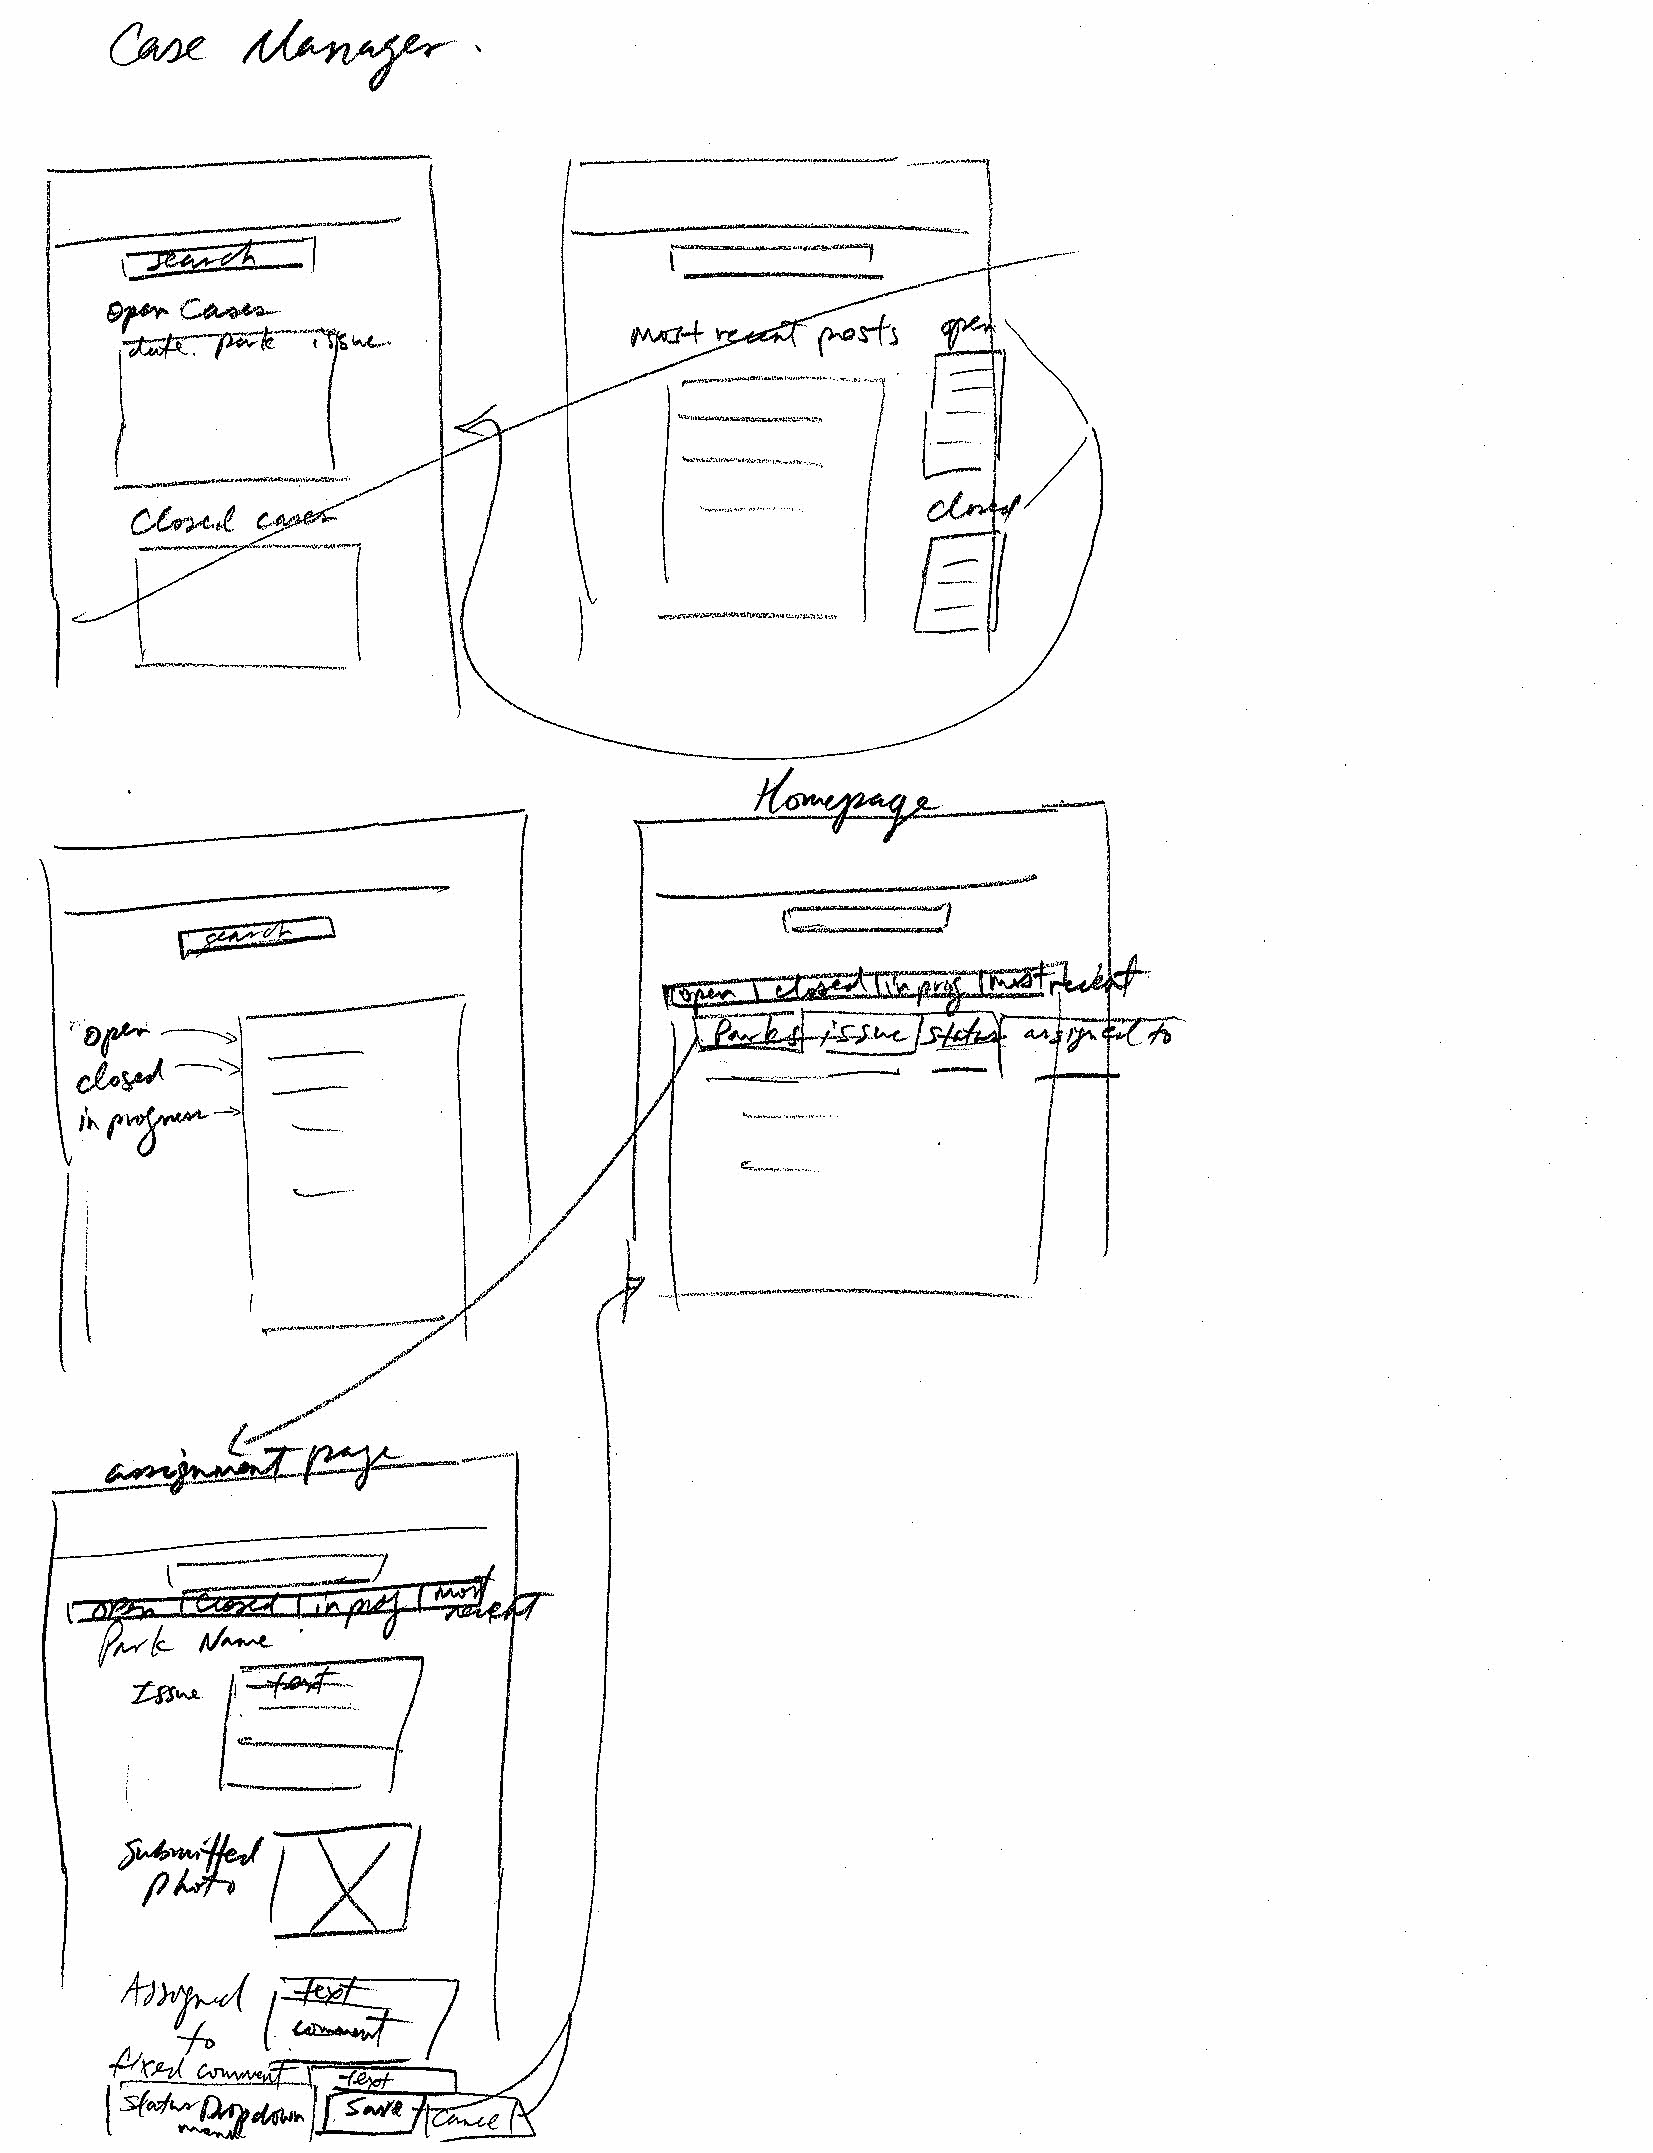 Case Manager.
search
open Cases
date. park issue
Closed cases
Most recent posts
open
closed
search
open
closed
in progress
Homepage
open | closed | in prog | most recent
Parks | issue | status | assigned to
assignment page
open | closed | in prog | most
recent
Park Name
Issue
text
Submitted
photo
Assigned
to
text
comment
fixed comment
text
Status Dropdown
menu
Save
Cancel